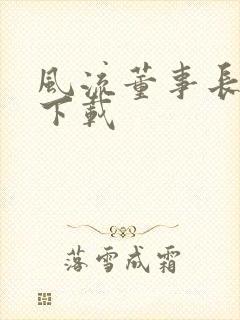 風流董事長
下載
落雪成霜